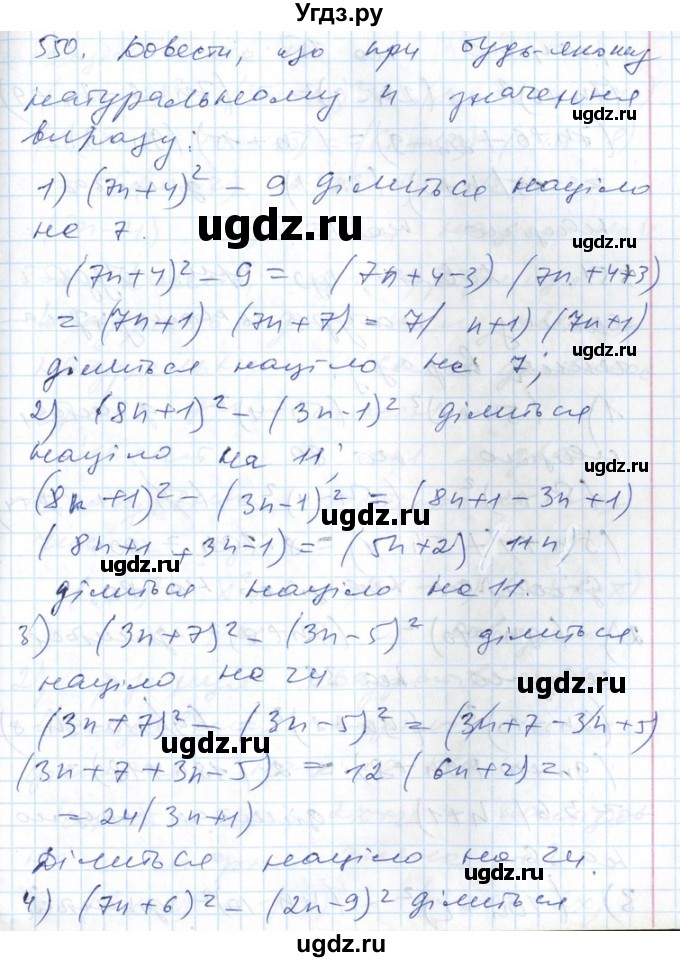 Угдз.ру
550. Довести, що при будь-якому
натуральному n значення
виразу:
1) (7n+4)² - 9 ділиться націло
на 7.
ugdz.ru
(7n+4)² - 9 = (7n+4-3) (7n+4+3)
= (7n+1) (7n+7) = 7(n+1) (7n+1)
ділиться націло на 7;
2) (8n+1)² - (3n-1)² ділиться
націло на 11;
(8n+1)² - (3n-1)² = (8n+1-3n+1)
(8n+1+3n-1) = (5n+2) (11n)
ділиться націло на 11.
3) (3n+7)² - (3n-5)² ділиться
націло на 24
(3n+7)² - (3n-5)² = (3n+7-3n+5)
(3n+7+3n-5) = 12 (6n+2) =
= 24(3n+1)
Ділиться націло на 24.
4) (7n+6)² - (2n-9)² ділиться
ugdz.ru